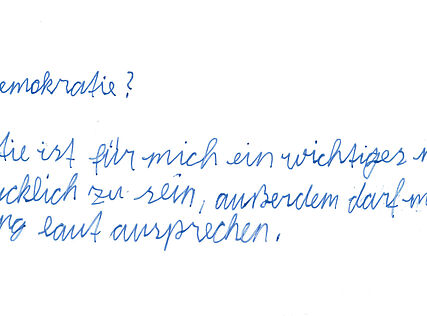 emokratie?
tie ist für mich ein wichtiges
cklich zu sein, außerdem darf
ng laut aussprechen.